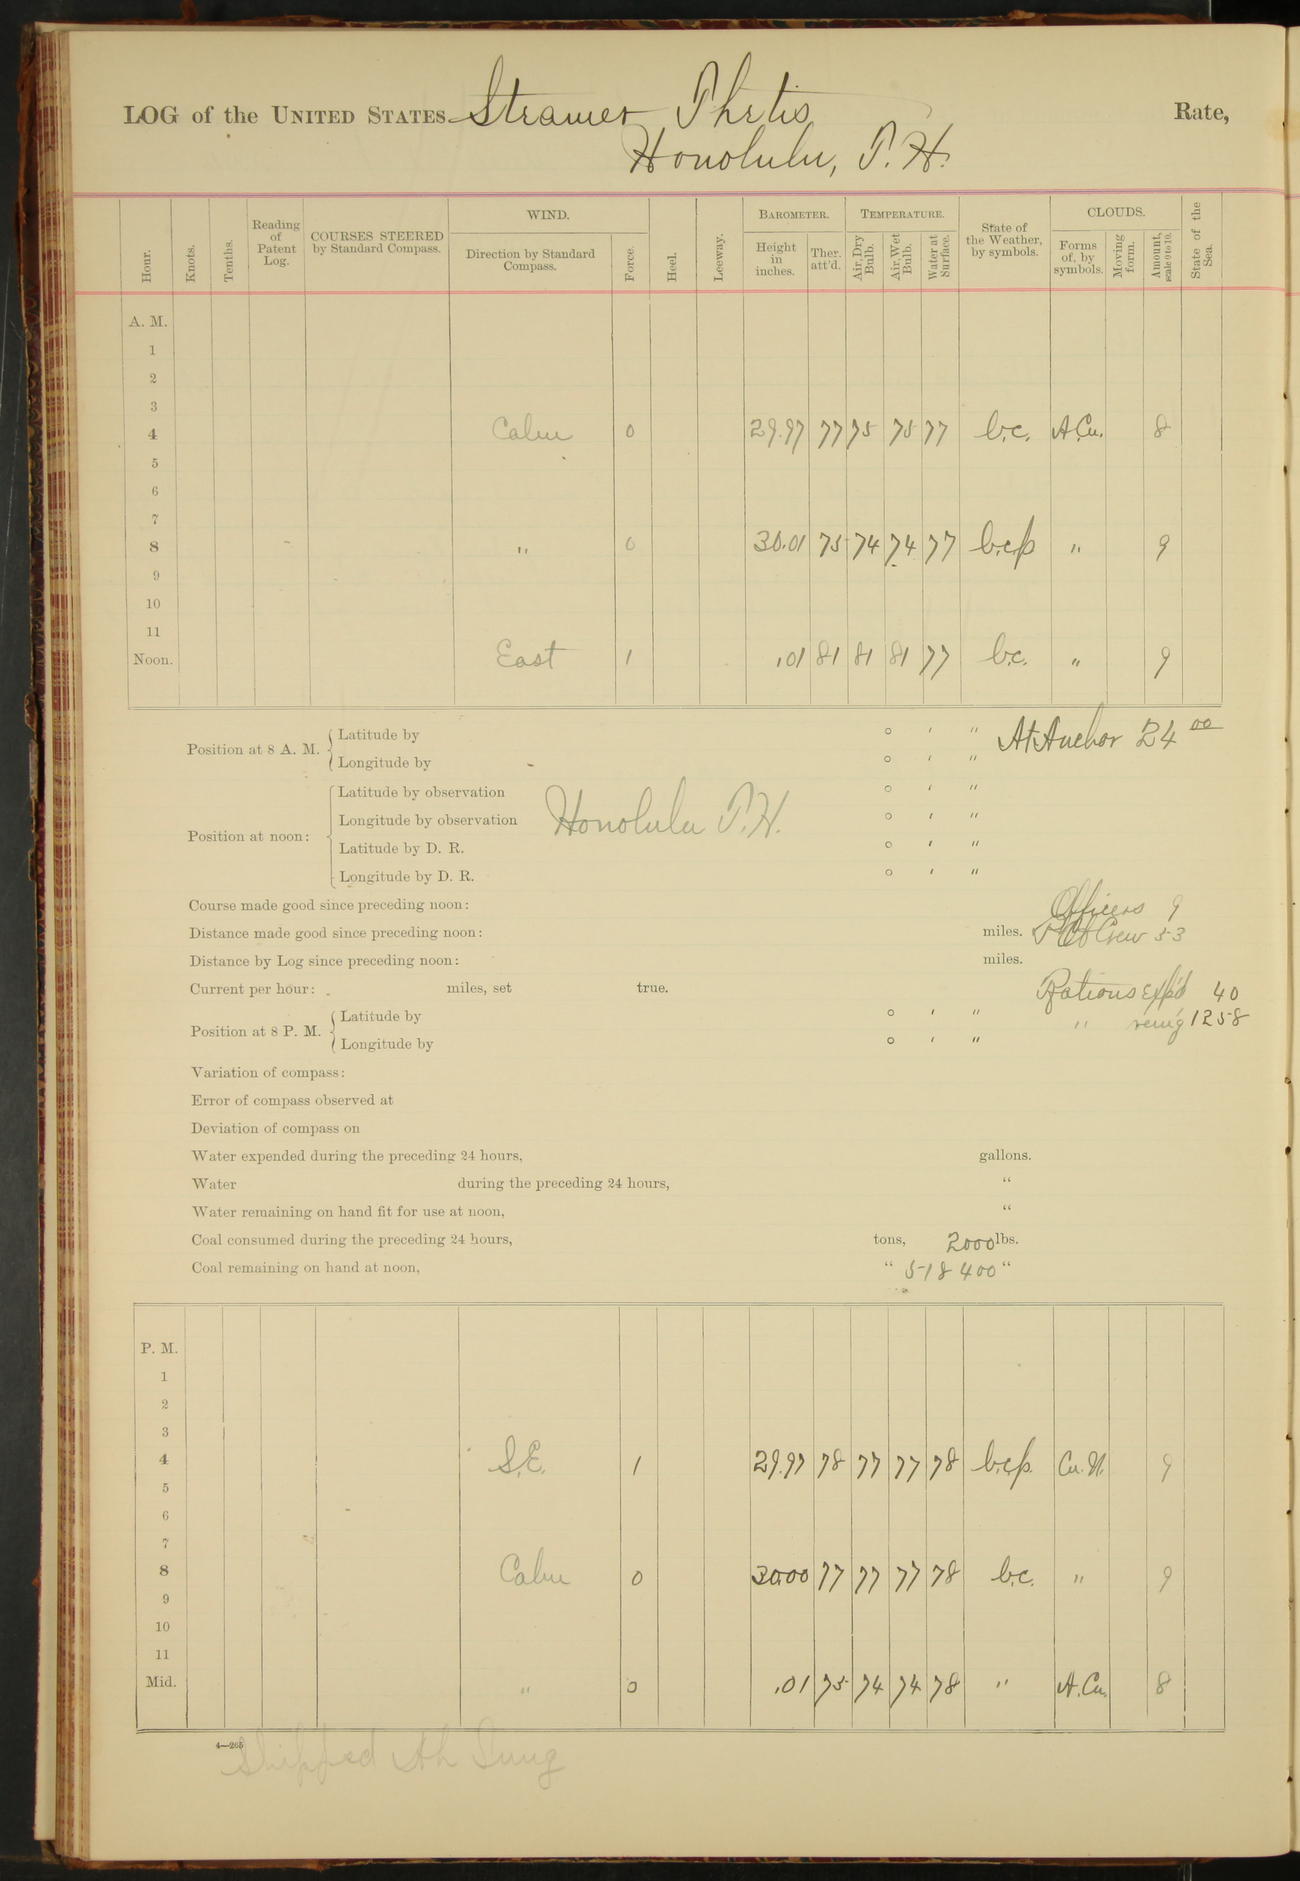 LOG of the UNITED STATES Steamer Thetis Rate,
Honolulu, T.H.
Hour. Knots. Tenths. Reading of Patent Log. COURSES STEERED by Standard Compass. WIND. Direction by Standard Compass. Force. Heel. Leeway. BAROMETER. Height in inches. Ther. att'd. TEMPERATURE. Air, Dry Bulb. Air, Wet Bulb. Water at Surface. State of the Weather, by symbols. CLOUDS. Forms of, by symbols. Moving form. Amount, scale 0 to 10. State of the Sea.
A. M.
1
2
3
4 Calm 0 29.97 77 75 75 77 b.c. A.Cu. 8
5
6
7
8 " 0 30.01 75 74 74 77 b.c.p " 9
9
10
11
Noon. East 1 .01 81 81 81 77 b.c. " 9
Position at 8 A. M. Latitude by ° ′ ″ At Anchor 24 00
Longitude by ° ′ ″
Position at noon: Latitude by observation ° ′ ″
Longitude by observation Honolulu T.H. ° ′ ″
Latitude by D. R. ° ′ ″
Longitude by D. R. ° ′ ″
Course made good since preceding noon: Officers 9
Distance made good since preceding noon: miles. Crew 53
Distance by Log since preceding noon: miles.
Current per hour: miles, set true. Rations Exp'd 40
Position at 8 P. M. Latitude by ° ′ ″ " rem'g 1258
Longitude by ° ′ ″
Variation of compass:
Error of compass observed at
Deviation of compass on
Water expended during the preceding 24 hours, gallons.
Water during the preceding 24 hours, "
Water remaining on hand fit for use at noon, "
Coal consumed during the preceding 24 hours, tons, 2000 lbs.
Coal remaining on hand at noon, " 518 400 "
P. M.
1
2
3
4 S.E. 1 29.97 78 77 77 78 b.c.p. Cu.N. 9
5
6
7
8 Calm 0 30.00 77 77 77 78 b.c. " 9
9
10
11
Mid. " 0 .01 75 74 74 78 " A.Cu. 8
4—265
Shipped Ah Sung